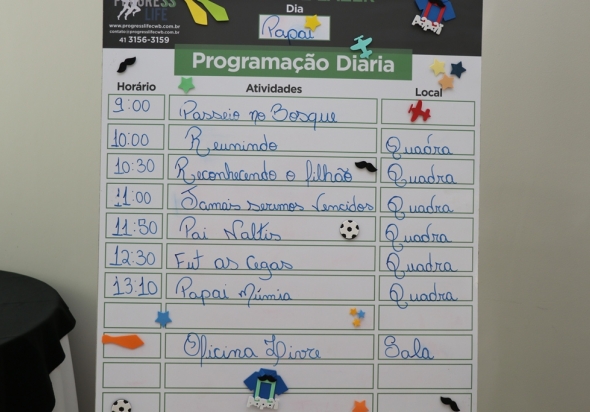 PROGRESS
LIFE
www.progresslifecwb.com.br
contato@progresslifecwb.com.br
41 3156-3159
Dia
Papai
Programação Diária
Horário Atividades Local
9:00 Passeio no Bosque
10:00 Reunindo Quadra
10:30 Reconhecendo o filhão Quadra
11:00 Jamais seremos vencidos Quadra
11:50 Pai Naltis Quadra
12:30 Fut as Cegas Quadra
13:10 Papai Múmia Quadra
Oficina Livre Sala